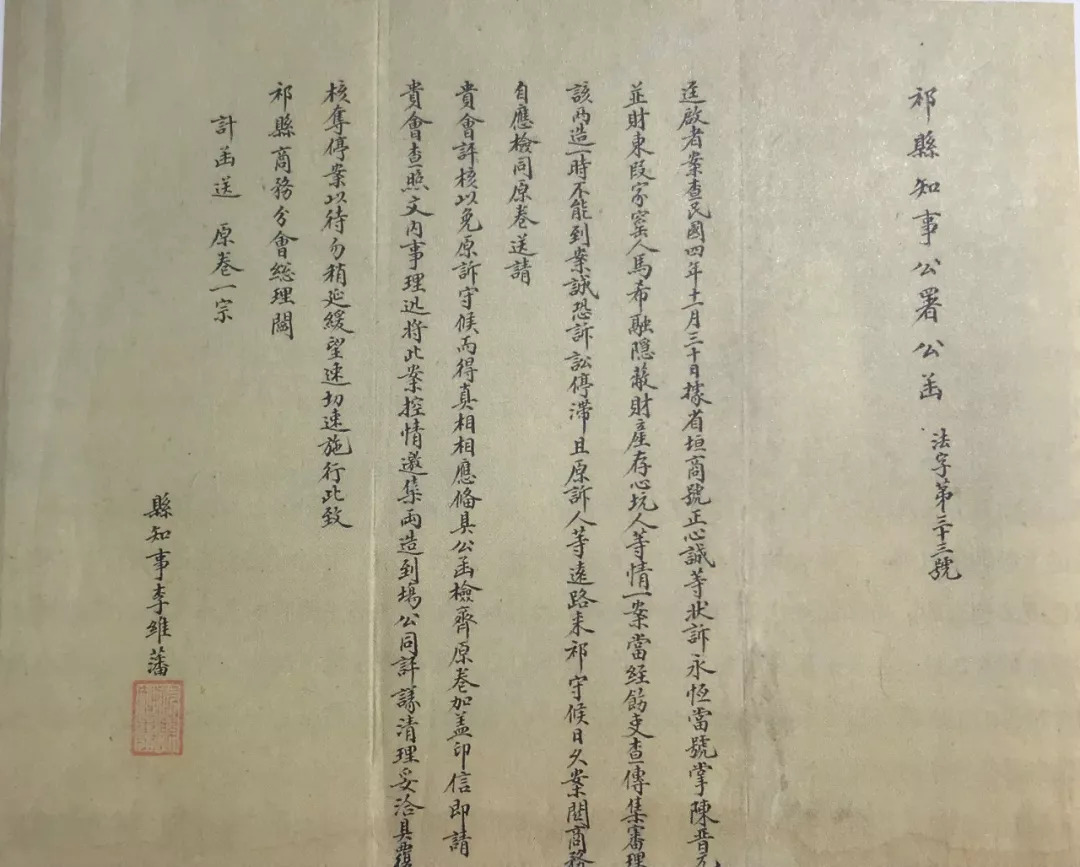 祁縣知事公署公函 法字第三十三號
逕啟者案查民國四年十一月三十日據省垣商號正心誠等狀訴永恆當號掌陳晋
並財東段家窯人馬希融隱蔽財產存心坑人等情一案當經飭吏查傳集審理
該兩造一時不能到案誠恐訴訟停滯且原訴人等遠路来祁守候日久案関商務
自應檢同原卷送請
貴會評核以免原訴守候而得真相相應偹具公函檢齊原卷加盖印信即請
貴會查照文内事理迅將此案控情邀集両造到塲公同評議清理妥洽具覆
核奪停案以待勿稍延緩望速切速施行此致
祁縣商務分會総理闗
計函送 原卷一宗
縣知事李維藩